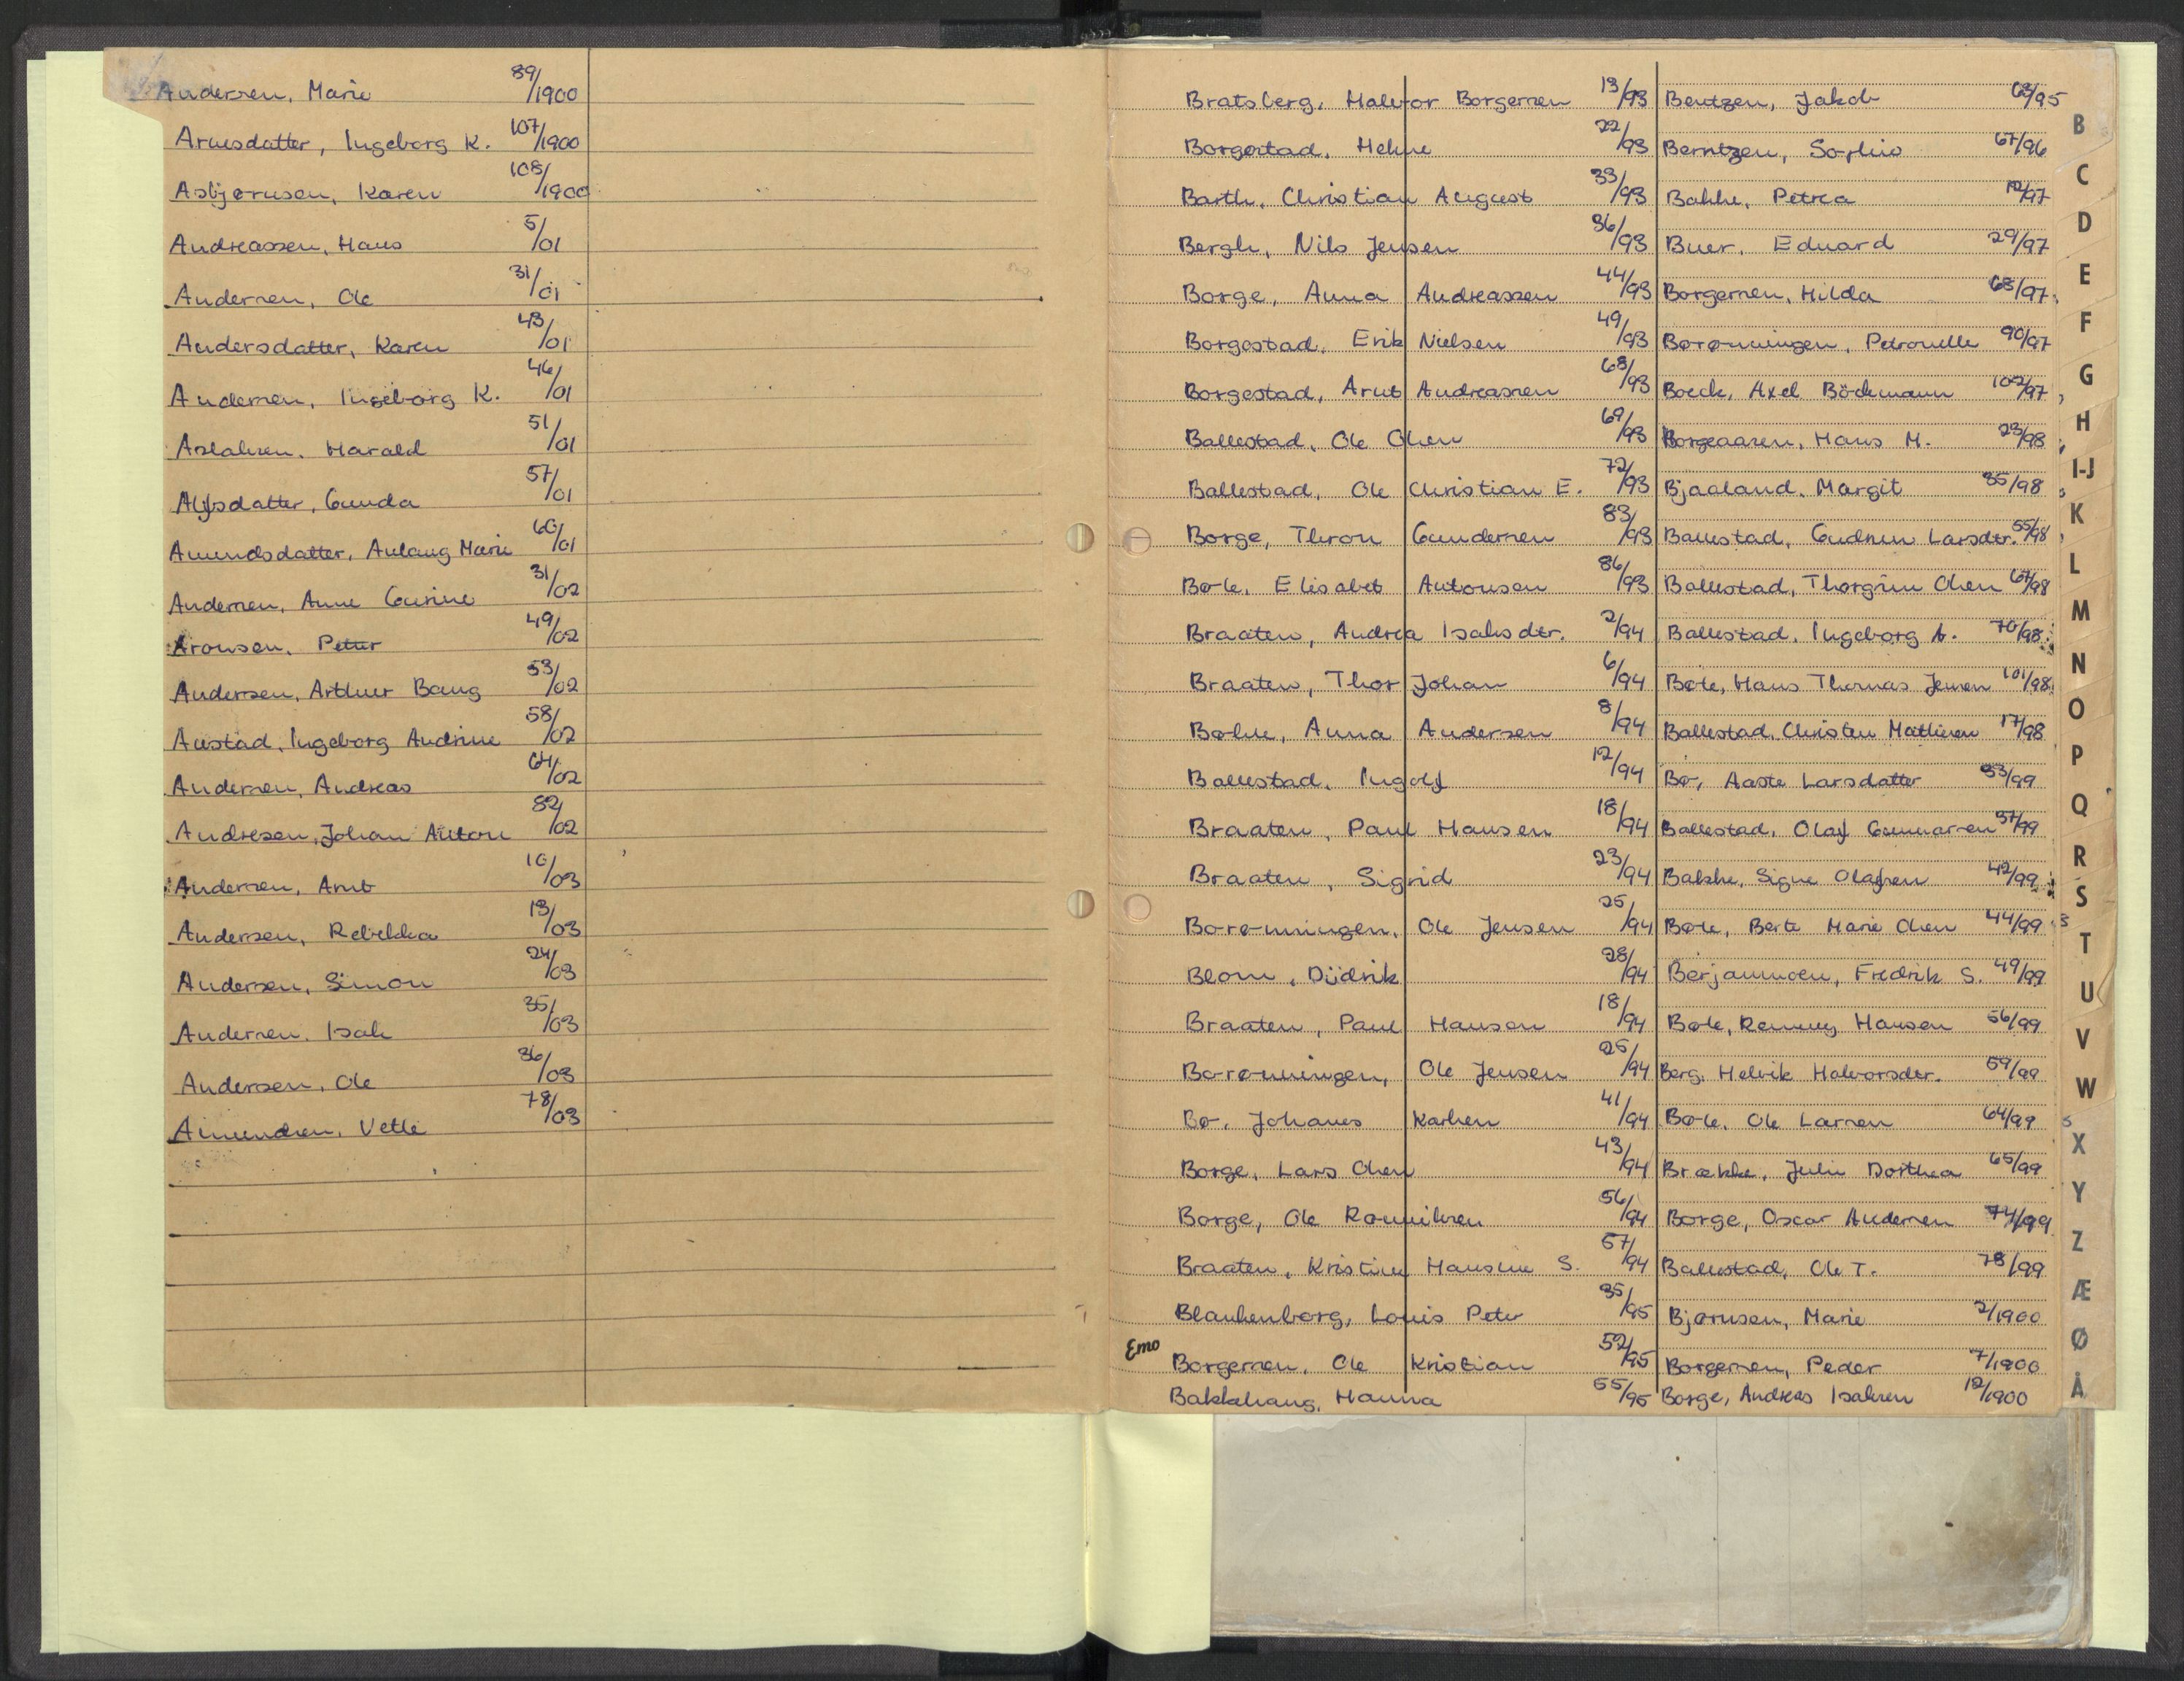 Andersen, Marie 89/1900
Arnesdatter, Ingeborg K. 107/1900
Asbjørnsen, Karen 108/1900
Andreassen, Hans 5/01
Andersen, Ole 31/01
Andersdatter, Karen 43/01
Andersen, Ingeborg K. 46/01
Aslaksen, Harald 51/01
Alfsdatter, Gunda 57/01
Amundsdatter, Aslaug Marie 60/01
Andersen, Anne Gurine 31/02
Aronsen, Petter 49/02
Andersen, Arthur Bang 53/02
Austad, Ingeborg Andrine 58/02
Andersen, Andreas 64/02
Andresen, Johan Anton 82/02
Andersen, Arnt 10/03
Andersen, Rebekka 13/03
Andersen, Simon 24/03
Andersen, Isak 35/03
Andersen, Ole 36/03
Amundsen, Vetle 78/03
Bratsberg, Halvor Borgersen 13/93
Borgestad, Helene 22/93
Barth, Christian August 33/93
Bergh, Nils Jensen 36/93
Borge, Anna Andreassen 44/93
Borgestad, Erik Nielsen 49/93
Borgestad, Arnt Andreassen 68/93
Ballestad, Ole Olsen 69/93
Ballestad, Ole Christian E. 72/93
Borge, Thron Gundersen 83/93
Bøle, Elisabet Antonsen 86/93
Braaten, Andrea Isaksdtr. 2/94
Braaten, Thor Johan 6/94
Anna Andersen 8/94
Ballestad, Ingolf 12/94
Braaten, Paul Hansen 18/94
Braaten, Sigrid 23/94
Borønningen, Ole Jensen 25/94
Blom, Didrik 28/94
Braaten, Paul Hansen 18/94
Borønningen, Ole Jensen 25/94
Bø, Johanes Karlsen 41/94
Borge, Lars Olsen 43/94
Borge, Ole Rønnilsen 56/94
Braaten, Kristine Hansine S. 57/94
Blankenborg, Louis Peter 35/95
Emo
Borgersen, Ole Kristian 52/95
Bakkehaug, Hanna 55/95
Bentzen, Jakob 63/95
Berntzen, Sophie 67/96
Bakke, Petrea 12/97
Buer, Eduard 29/97
Borgersen, Hilda 68/97
Borønningen, Petronelle 90/97
Boeck, Axel Böckmann 102/97
Borgeaasen, Hans M. 23/98
Bjaaland, Margit 35/98
Ballestad, Gudrun Larsdtr. 55/98
Ballestad, Thorgrim Olsen 67/98
Ballestad, Ingeborg A. 70/98
Bøle, Hans Thomas Jensen 101/98
Ballestad, Christen Mathisen 17/98
Bø, Aaste Larsdatter 33/99
Ballestad, Olaf Gunnarsen 37/99
Bakke, Signe Olafsen 42/99
Bøle, Berte Marie Olsen 44/99
Fredrik S. 49/99
Bøle, Hansen 56/99
Berg, Helvik Halvorsdtr. 59/99
Bøle, Ole Larsen 64/99
Brække, Julie Dorthea 65/99
Borge, Oscar Andersen 74/99
Ballestad, Ole T. 78/99
Bjørnsen, Marie 2/1900
Borgersen, Peder 7/1900
Borge, Andreas Isaksen 12/1900
B
C
D
E
F
G
H
I-J
K
L
M
N
O
P
Q
R
S
T
U
V
W
X
Y
Z
Æ
Ø
Å